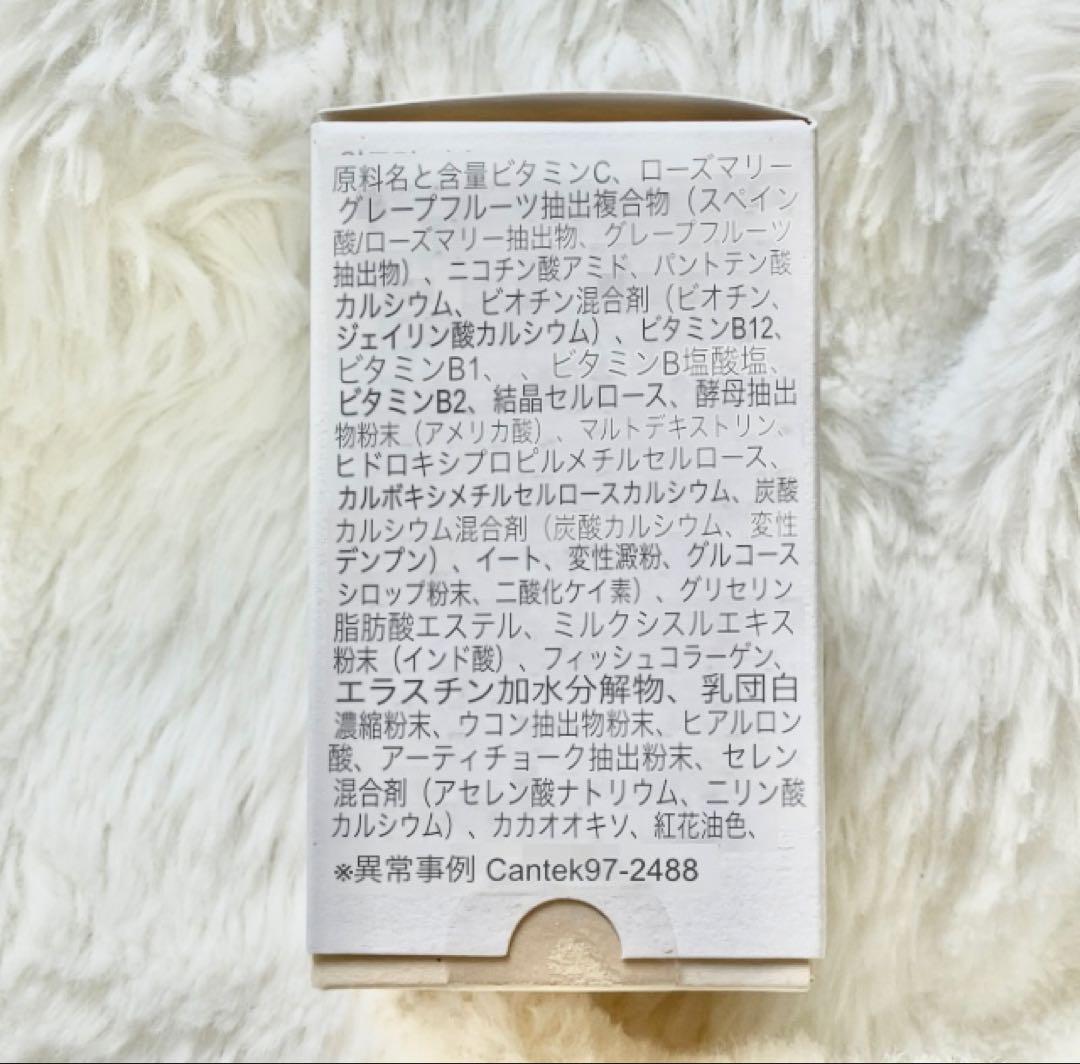 原料名と含量ビタミンC、ローズマリー
グレープフルーツ抽出複合物（スペイン
酸/ローズマリー抽出物、グレープフルーツ
抽出物）、ニコチン酸アミド、パントテン酸
カルシウム、ビオチン混合剤（ビオチン、
ジェイリン酸カルシウム）、ビタミンB12、
ビタミンB1、、ビタミンB塩酸塩、
ビタミンB2、結晶セルロース、酵母抽出
物粉末（アメリカ酸）、マルトデキストリン、
ヒドロキシプロピルメチルセルロース、
カルボキシメチルセルロースカルシウム、炭酸
カルシウム混合剤（炭酸カルシウム、変性
デンプン）、イート、変性澱粉、グルコース
シロップ粉末、二酸化ケイ素）、グリセリン
脂肪酸エステル、ミルクシスルエキス
粉末（インド酸）、フィッシュコラーゲン、
エラスチン加水分解物、乳団白
濃縮粉末、ウコン抽出物粉末、ヒアルロン
酸、アーティチョーク抽出粉末、セレン
混合剤（アセレン酸ナトリウム、ニリン酸
カルシウム）、カカオオキソ、紅花油色、
※異常事例 Cantek97-2488